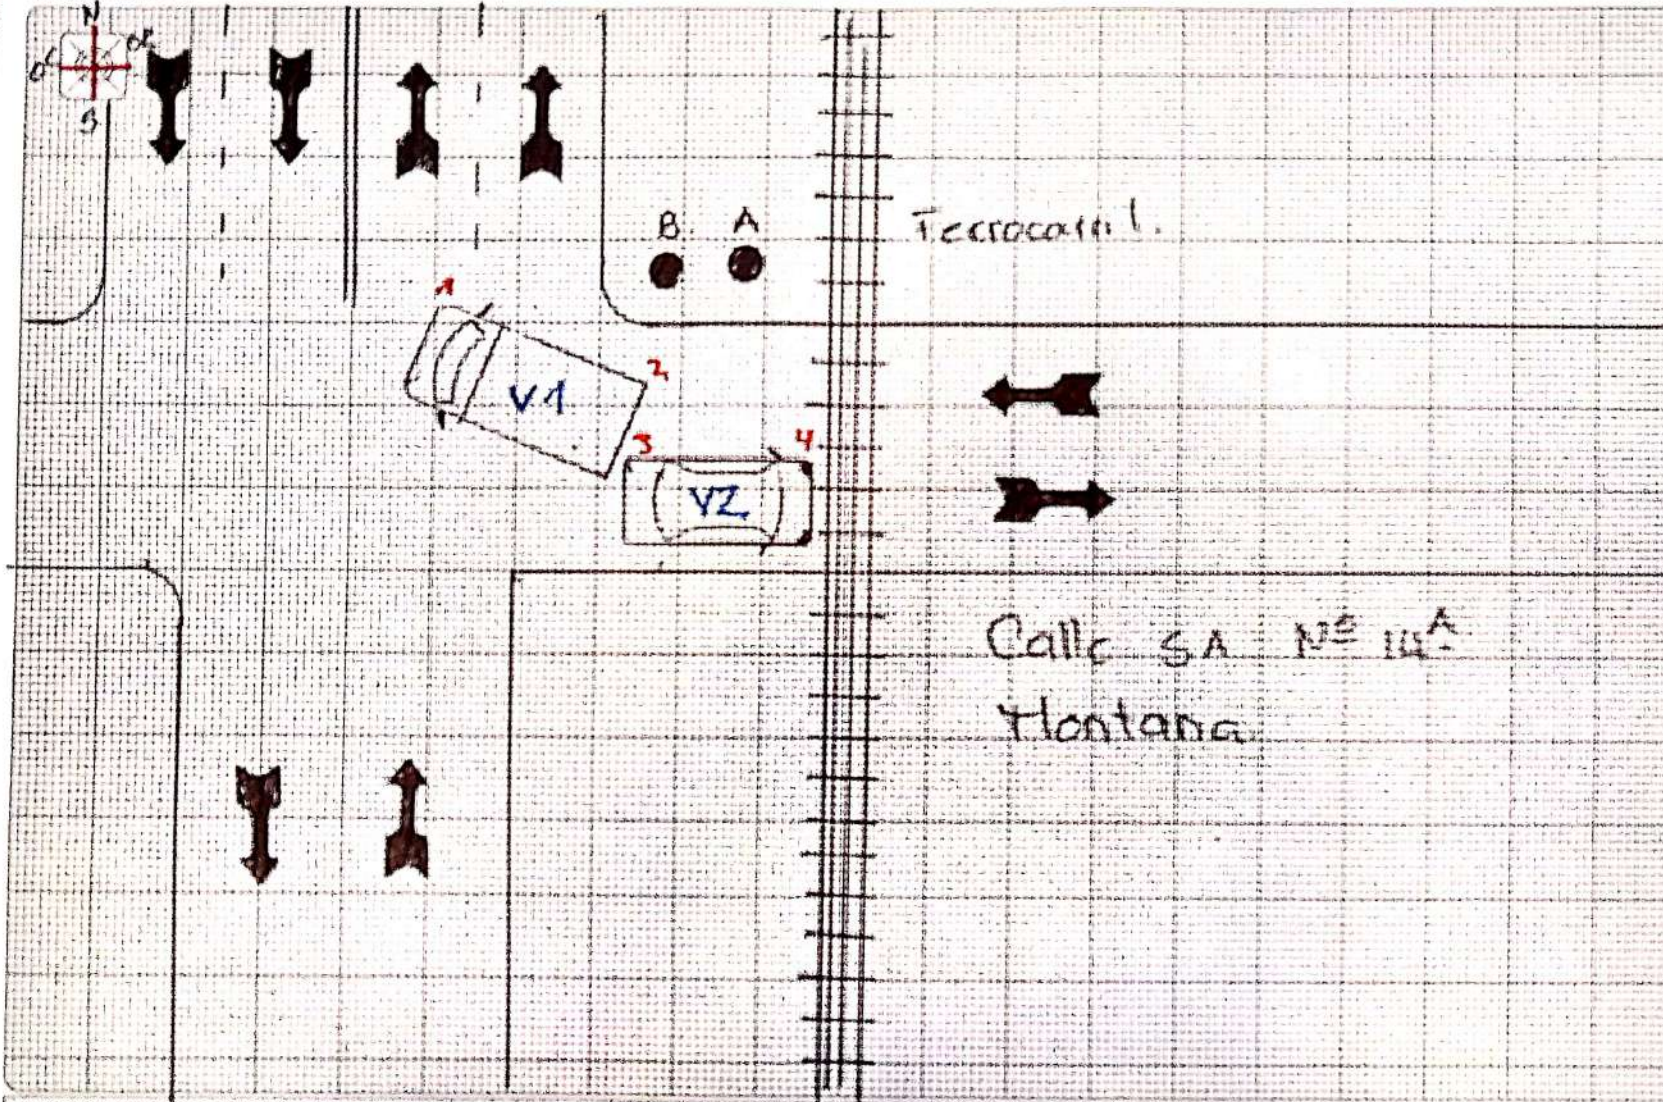 N
S
B A
Ferrocarril.
1
2
V1
3 4
V2
Calle 5A Nº 14A
Montana